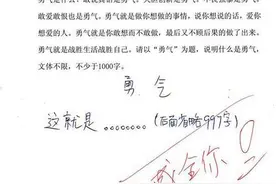 敢爱敢恨也是勇气。勇气就是做你想做的事情,说你想说的话,爱你
想爱的人。勇气就是你敢想而不敢做,最后又不顾后果的做了出来。
勇气就是战胜生活战胜自己,请以“勇气”为题,说明什么是勇气,
文体不限,不少于1000字。
勇 气
这就是........(后面省略997字)
成全你!
0